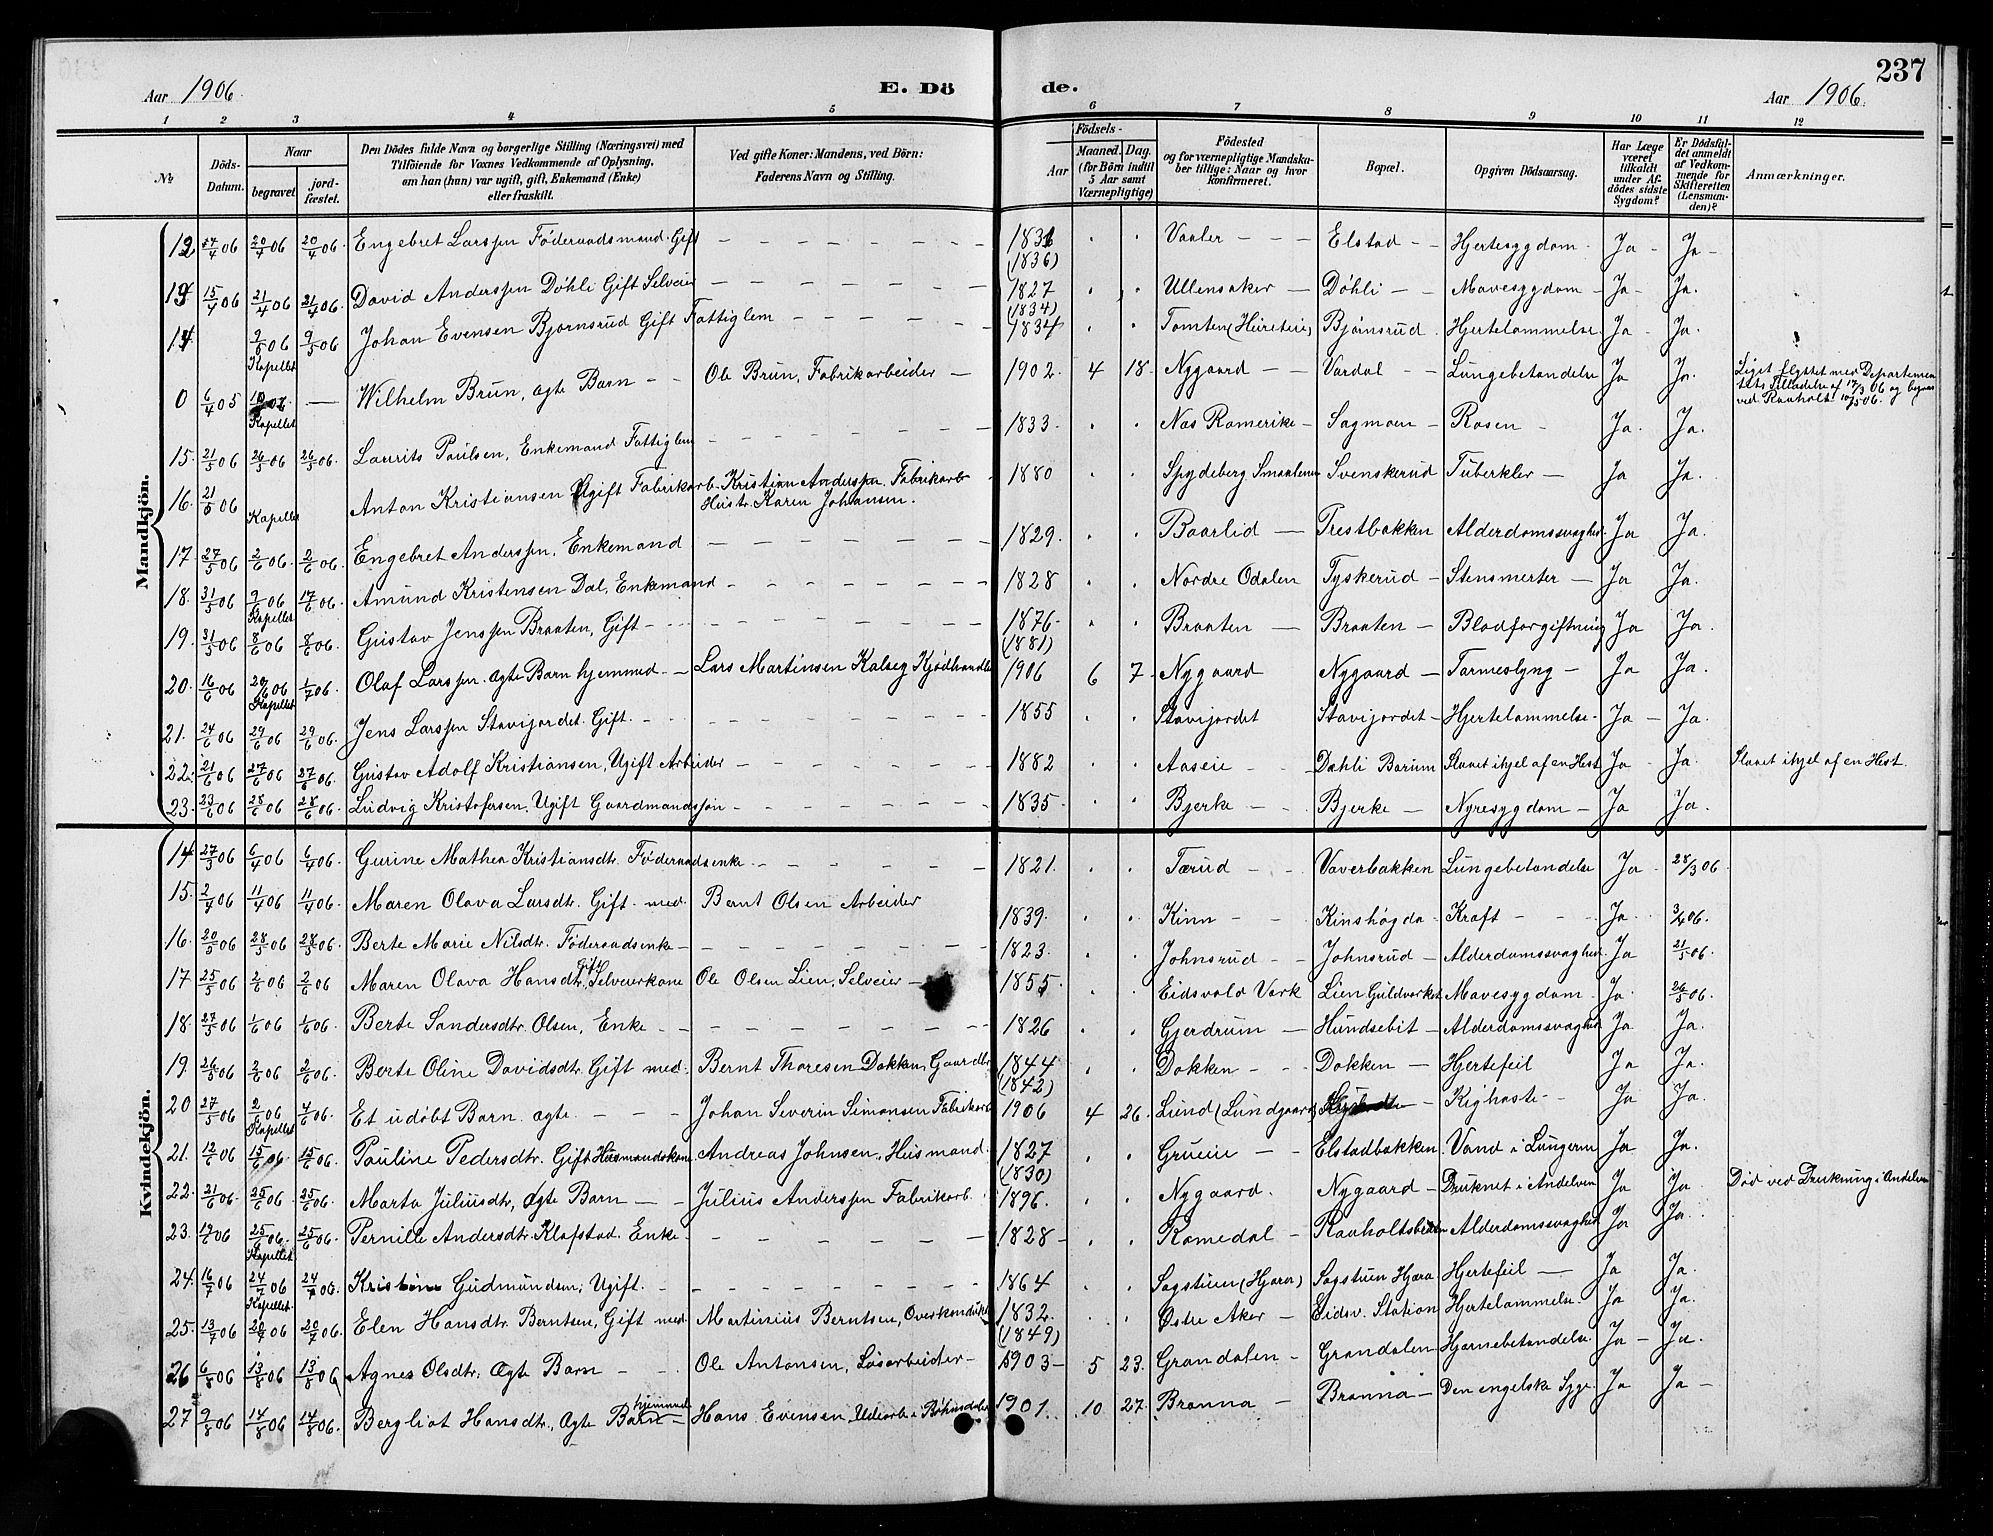 237
Aar 1906. E. Dö de. Aar 1906.
1 2 3 4 5 6 7 8 9 10 11 12
№ Döds-Datum. Naar begravet. jord-fæstet. Den Dödes fulde Navn og borgerlige Stilling (Næringsvei) med Tilföiende for Voxnes Vedkommende af Oplysning, om han (hun) var ugift, gift, Enkemand (Enke) eller fraskilt. Ved gifte Koner: Mandens, ved Börn: Faderens Navn og Stilling. Födsels- Aar Maaned. Dag. (for Börn indtil 5 Aar samt Værnepligtige) Födested og for værnepligtige Mandskaber tillige: Naar og hvor konfirmeret. Bopæl. Opgiven Dödsaarsag. Har Læge været tilkaldt under Afdödes sidste Sygdom? Er Dödsfaldet anmeldt af Vedkommende for Skifteretten (Lensmanden)? Anmærkninger.
Mandkjön.
12 17/4 06 20/4 06 20/4 06. Engebret Larssen Föderaadsmand. Gift — 1831 (1836) Vaaler — Elstad — Hjertesygdom. Ja — Ja —
13 15/4 06 21/4 06 21/4 06. David Anderssen Döhli Gift Selveier — 1827 (1834) Ullensaker — Döhli — Mavesygdom — Ja — Ja.
14 06 9/5 06 Kapellet Johan Evensen Bjørnsrud Gift Fattiglem — 1834 Tomten Bjørnsrud. Hjertelammelse. Ja — Ja.
0 6/4 05 Kapellet — Wilhelm Brun, ægte Barn — Ole Brun, Fabrikarbeider — 1902. 4 18. Nygaard — Vardal — Lungebetændelse Ja Ja. Liget flyttet med Departementets Tilladelse af 17/3 06 og begrav. ved Raaholt 10/5 06.
15. 21/5 06 26/5 06 26/5 06. Laurits Paulsen, Enkemand Fattiglem — 1833. Næs Romerike — Sagmoen — Rosen — Ja. Ja.
16. 21/5 06 Kapellet Anton Kristiansen Ugift Fabrikarb. Kristian Anderssen Fabrikarb Hustr. Karen Johansen. 1880 Spydeberg Smaalenene Svenskerud Tuberkler — Ja Ja.
17 27/5 06 2/6 06. 2/6 06. Engebret Anderssen, Enkemand — 1829. Baarlid — Trestbakken Alderdomssvaghed. Ja Ja.
18. 31/5 06 9/6 06 Kapellet 17/6 06. Amund Kristensen Dal, Enkemand — 1828 Nordre Odalen Tyskerud — Stensmerter — Ja Ja.
19. 31/5 06 8/6 06 8/6 06. Gustav Jenssen Braaten, Gift — 1876 (1881) Braaten — Braaten — Blodforgiftning Ja Ja.
20. 16/6 06 Kapellet 1/7 06. Olaf Larssen. ægte Barn hjemmed — Lars Martinsen Kalseg Kjødhandler 1906 6 7. Nygaard Nygaard — Tarmeslyng — Ja Ja.
21. 24/6 06 29/6 06 29/6 06. Jens Larssen Stavijordet. Gift. — 1855 Stavijordet Stavijordet — Hjertelammelse. Ja — Ja.
22. 21/6 06 27/6 06 27/6 06. Gustav Adolf Kristiansen, Ugift Arbeider — 1882 Aaseie — Dæhli Bærum Slaaet ihjel af en Hest Ja — Ja. Slaaet ihjel af en Hest.
23. 23/6 06 28/6 06 28/6 06. Ludvig Kristofersen, Ugift Gaardmandssøn — 1835. Bjerke — Bjerke — Nyresygdom — Ja Ja.
Kvindekjön.
14 27/3 06 6/4 06 6/4 06. Gurine Mathea Kristiansdtr. Föderaadsenke — 1821. Tærud — Væverbakken Lungebetændelse Ja 28/3 06
15. 2/4 06 11/4 06 11/4 06. Maren Olava Larsdtr. Gift med Bernt Olsen Arbeider 1839. Kinn — Kinshøgda Kræft — Ja. 3/4 06.
16. 20/5 06 28/5 06 28/5 06. Berte Marie Nilsdtr. Föderaadsenke — 1823. Johnsrud — Johnsrud — Alderdomssvaghed. Ja 21/5 06.
17 25/5 06 2/6 06 2/6 06 Maren Olava Hansdtr. gift Selveierkone Ole Olsen Lien, Selveier — 1855. Eidsvold Værk Lien Guldværket Mavesygdom. Ja. 26/5 06.
18. 27/5 06 1/6 06 1/6 06. Berte Sandersdtr. Olsen, Enke — 1826 Gjerdrum — Hundsebit — Alderdomssvaghed Ja Ja.
19. 26/5 06 2/6 06 2/6 06. Berte Oline Davidsdtr. Gift med. Bernt Thoresen Dokken, Gaardbr. 1844 (1842) Dokken — Dokken — Hjertefeil Ja Ja.
20 27/5 06 2/6 06 Kapellet 4/6 06. Et udøbt Barn. ægte. — Johan Severin Simonsen Fabrikarb 1906 4 26. Lund (Lundgaard) — Kighoste — Ja Ja.
21. 12/6 06 15/6 06. 15/6 06. Pauline Pedersdtr. Gift Husmandskone. Andreas Johnsen, Husmand. 1827 (1830) Grueie — Elstadbakken. Vand i Lungerne Ja Ja.
22. 21/6 06. 25/6 06. 25/6 06. Marta Juliusdtr, Ægte Barn — Julius Anderssen Fabrikarb. 1896. Nygaard. Nygaard — Druknet i Andelven Ja Ja Død ved Drukning i Andelven
23. 06 25/6 06. Kapellet 25/6 06. Pernille Andersdtr. Klofstad. Enke. — 1828 — Romedal — Raaholtsbakken Alderdomssvaghed Ja Ja.
24. 16/7 06 24/7 06 Kapellet. 24/7 06. Kristine Gudmundsen, Ugift. — 1864 Sagstuen (Hjæra) Sagstuen Hjæra Hjertefeil — Ja Ja.
25. 13/7 06 20/7 06 20/7 06. Elen Hansdtr. Berntsen, Gift med Martinius Berntsen, Overkonduktør 1832. (1849) Østre Aker — Eidsv. Station Hjertelammelse. Ja Ja.
26 6/8 06 13/8 06 13/8 06 Agnes Olsdtr. Ægte Barn — Ole Antonsen, Løsarbeider — 1903 — 5 23. Grandalen — Grandalen Hjernebetændelse. Ja — Ja.
27 9/8 06 14/8 06 14/8 06. Bergliot Hansdtr, Ægte Barn hjemmed — Hans Evensen, i Bøhnsdalen 1901. 10 27. Brænna — Brænna — Den engelske Syge. Ja Ja —